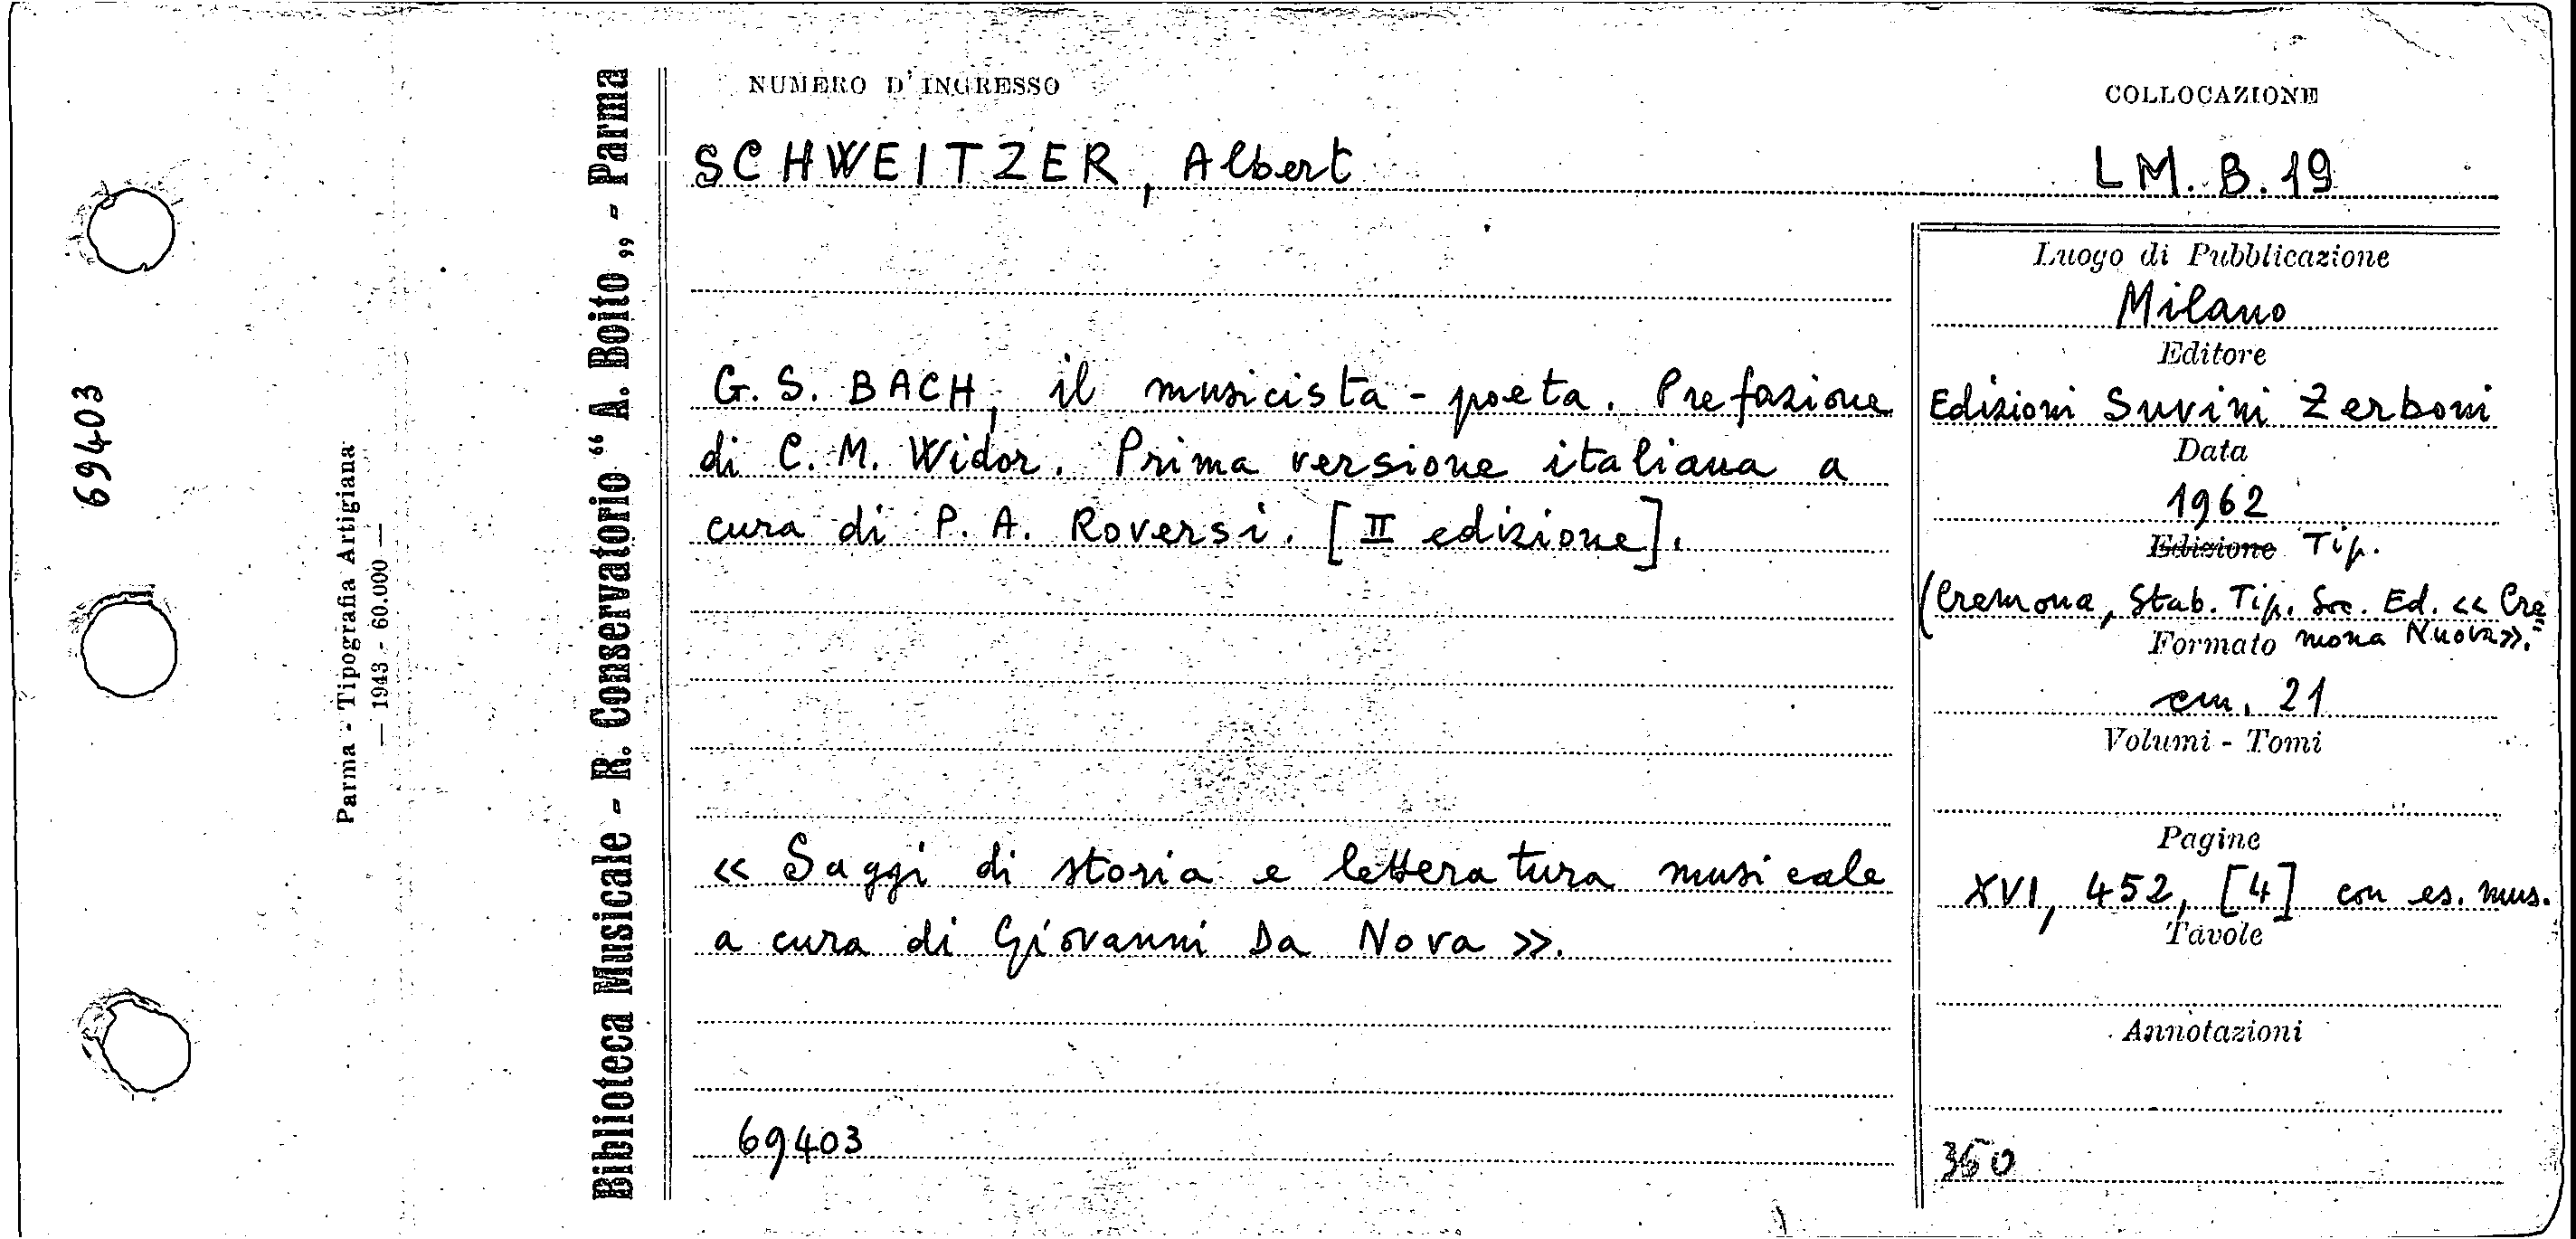 69403
Parma - Tipografia Artigiana
— 1943 - 60.000 —
Biblioteca Musicale - R. Conservatorio “ A. Boito „ - Parma
NUMERO D'INGRESSO
COLLOCAZIONE
SCHWEITZER, Albert
LM. B. 19
G. S. BACH, il musicista - poeta. Prefazione
di C. M. Widor. Prima versione italiana a
cura di P. A. Roversi. [II edizione].
« Saggi di storia e letteratura musicale
a cura di Giovanni Da Nova ».
69403
Luogo di Pubblicazione
Milano
Editore
Edizioni Suvini Zerboni
Data
1962
Edizione Tip.
(Cremona, Stab. Tip. Soc. Ed. « Cre=
Formato mona Nuova».
cm. 21
Volumi - Tomi
Pagine
XVI, 452, [4] con es. mus.
Tavole
Annotazioni
360